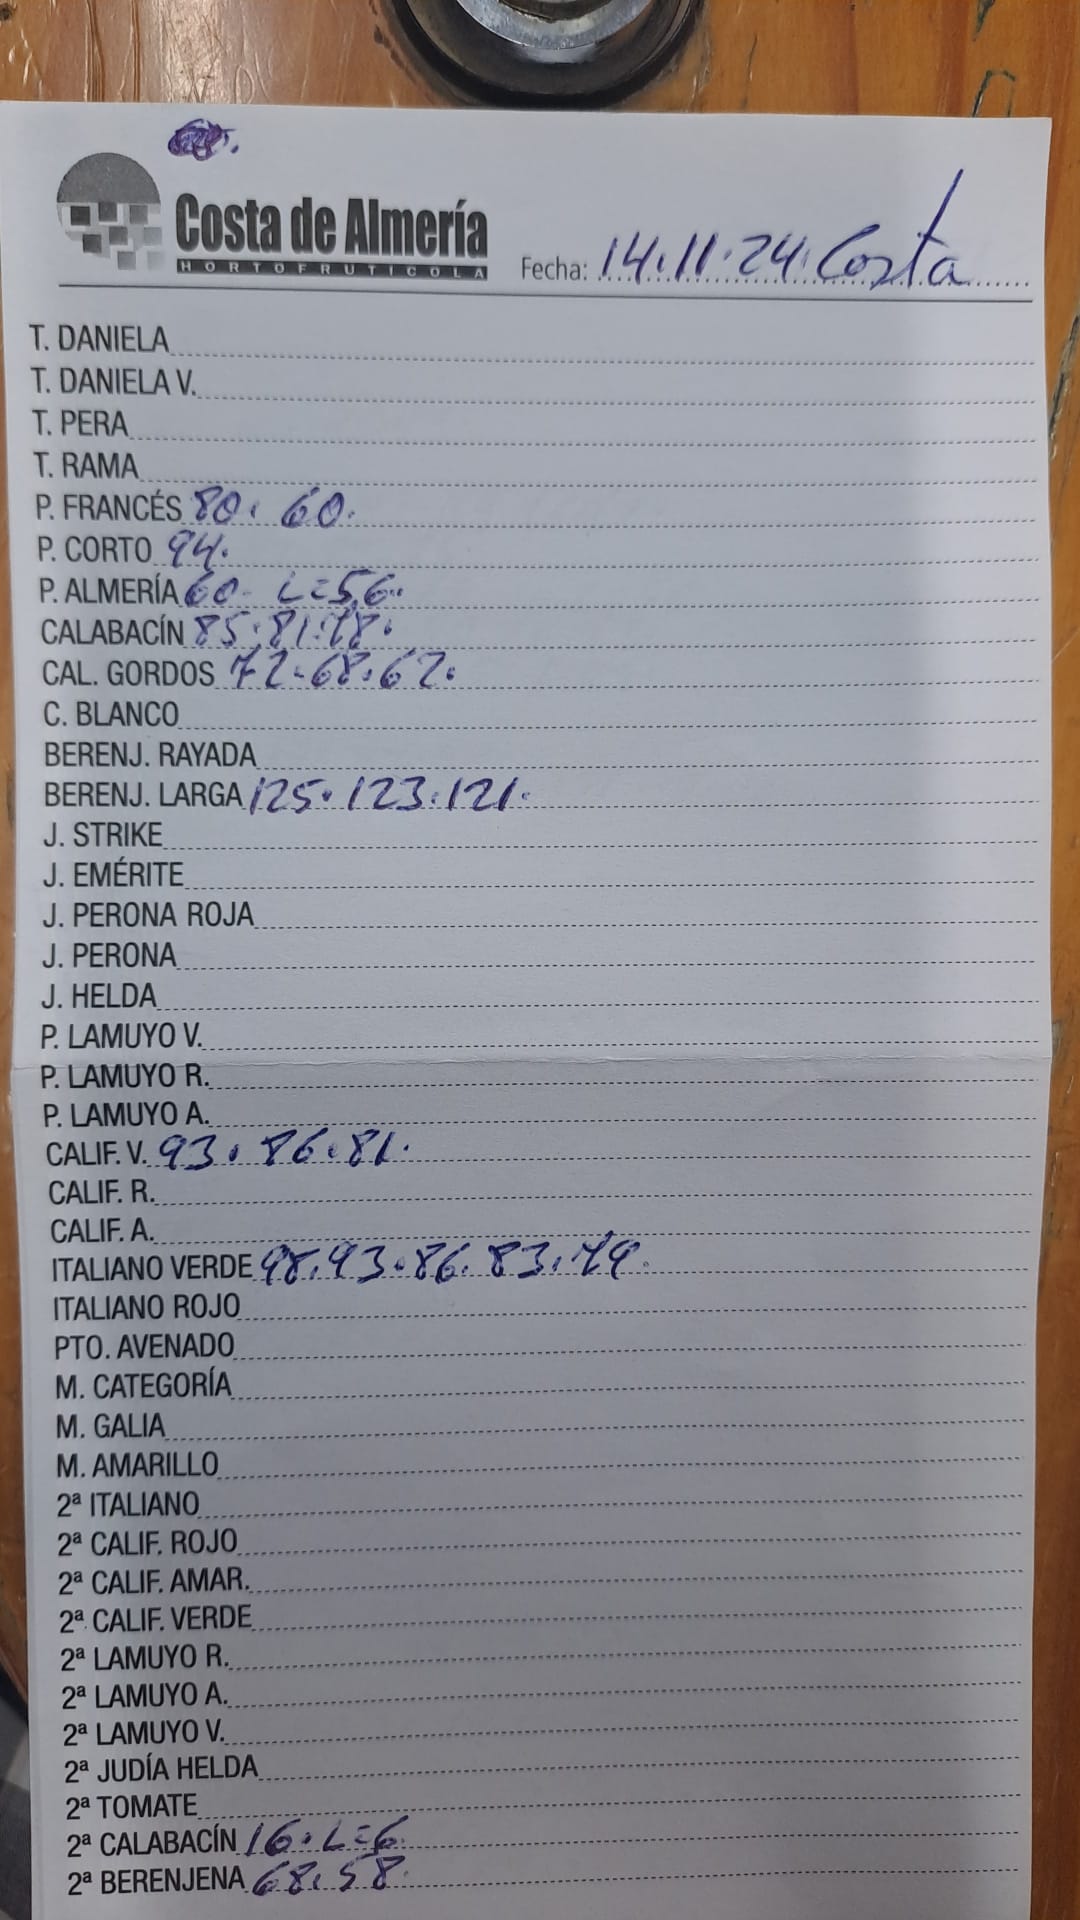 Costa de Almería
HORTOFRUTICOLA
Fecha: 14.11.24. Costa
T. DANIELA
T. DANIELA V.
T. PERA
T. RAMA
P. FRANCÉS 80. 60.
P. CORTO 94.
P. ALMERÍA 60. L=56.
CALABACÍN 85.81.78.
CAL. GORDOS 72.68.62.
C. BLANCO
BERENJ. RAYADA
BERENJ. LARGA 125.123.121.
J. STRIKE
J. EMÉRITE
J. PERONA ROJA
J. PERONA
J. HELDA
P. LAMUYO V.
P. LAMUYO R.
P. LAMUYO A.
CALIF. V. 93.86.81.
CALIF. R.
CALIF. A.
ITALIANO VERDE 98.93.86.83.79.
ITALIANO ROJO
PTO. AVENADO
M. CATEGORÍA
M. GALIA
M. AMARILLO
2ª ITALIANO
2ª CALIF. ROJO
2ª CALIF. AMAR.
2ª CALIF. VERDE
2ª LAMUYO R.
2ª LAMUYO A.
2ª LAMUYO V.
2ª JUDÍA HELDA
2ª TOMATE
2ª CALABACÍN 16. L=6
2ª BERENJENA 68.58.